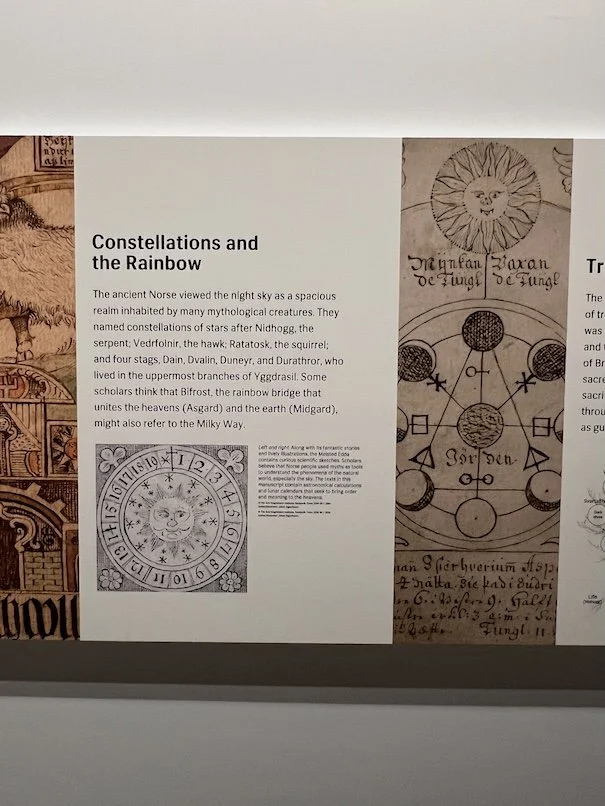 Constellations and
the Rainbow
The ancient Norse viewed the night sky as a spacious
realm inhabited by many mythological creatures. They
named constellations of stars after Nidhogg, the
serpent; Vedrfolnir, the hawk; Ratatosk, the squirrel;
and four stags, Dain, Dvalin, Duneyr, and Durathror, who
lived in the uppermost branches of Yggdrasil. Some
scholars think that Bifrost, the rainbow bridge that
unites the heavens (Asgard) and the earth (Midgard),
might also refer to the Milky Way.
Left and right: Along with its fantastic stories
and lively illustrations, the Melsted Edda
contains curious scientific sketches. Scholars
believe that Norse people used myths as tools
to understand the phenomena of the natural
world, especially the sky. The texts in this
manuscript contain astronomical calculations
and lunar calendars that seek to bring order
and meaning to the heavens.
1 2 3 4 5 6 7 8 9 10 11 12 13 14 15 16 17 18 19
Mÿnkan Vaxan
de Tungl de Tungl
Jör den
Tungl 11
Tr
The
of tr
was
and
of Br
sacre
sacri
throu
as gu
Life